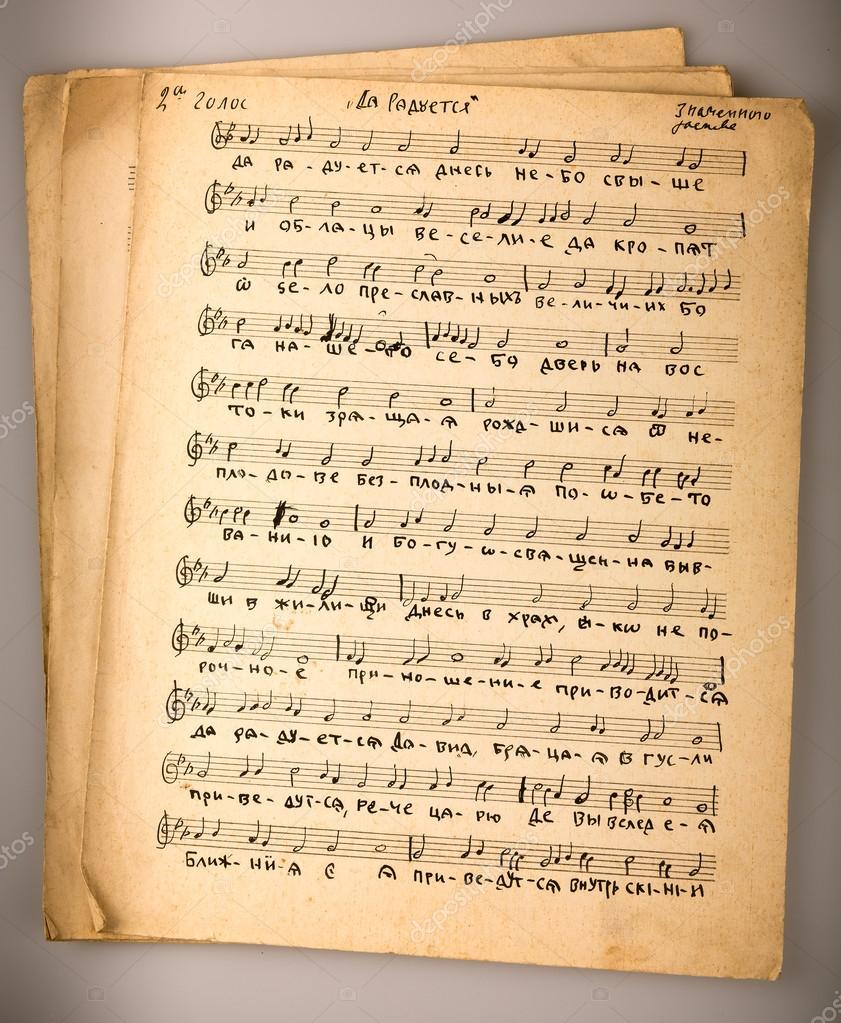 2а голос „Да Радуется" Знаменного
да ра-ду-ет-сѧ днесь не-бо свы-ше
и об-ла-цы ве-се-ли-е да кро-пѧт
ѿ ѕе-ло пре-слав-ныхъ ве-ли-чи-их бо
га на-ше-го се-бо дверь на вос
то-ки зрѧ-ща-ѧ рожд-ши-сѧ ѿ не-
пло-до-ве без-плод-ны-ѧ по-ѡ-бе-то
ва-ни-ю и бо-гу-ѡ-свѧ-щен-на быв-
ши в жи-ли-щи днесь в храм, ꙗ-кѡ не по-
роч-но-е при-но-ше-ни-е при-во-дит-сѧ
да ра-ду-ет-сѧ да-вид, брѧ-ца-ѧ в гус-ли
при-ве-дут-сѧ, ре-че ца-рю де вы вслед е-ѧ
ближ-ни-ѧ е ѧ при-ве-дут-сѧ внутрь скі-ні-и